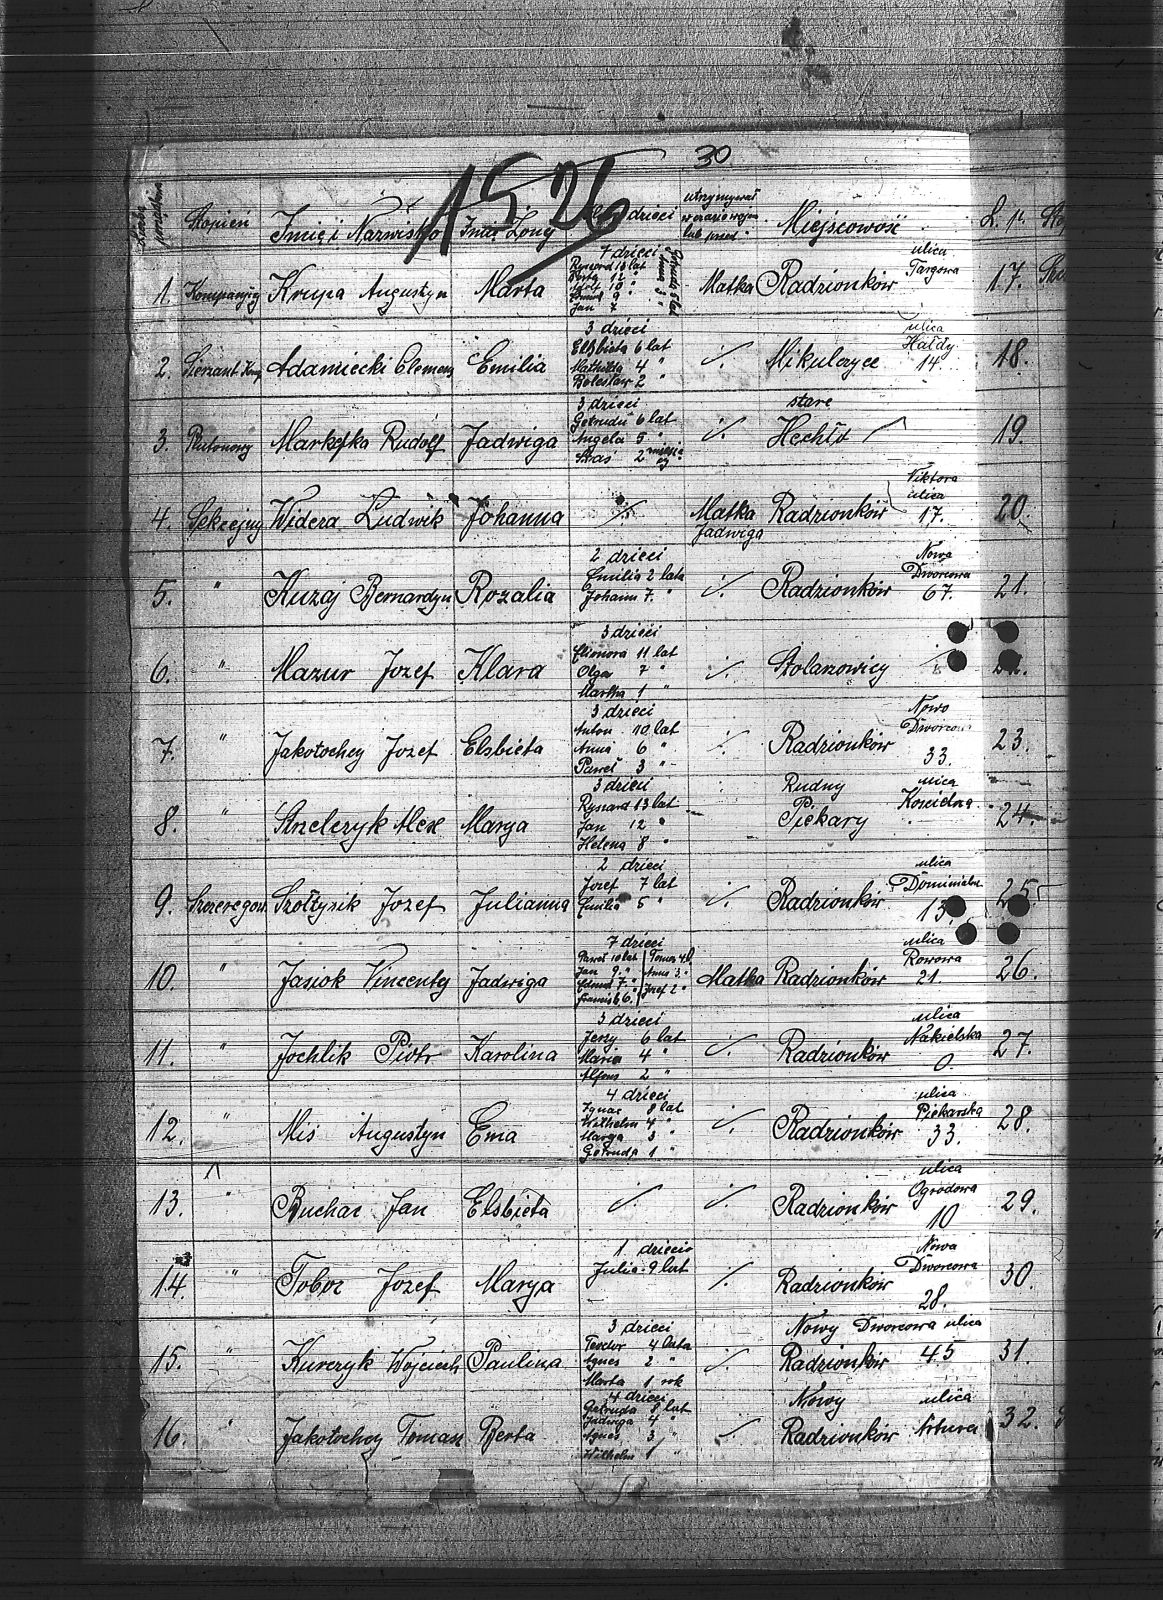 30
1526
Liczba porządkowa Stopień Imię i Nazwisko Imię Żony dzieci utrzymywał w czasie wojny lub przed Miejscowość L. p.
1. Krupa Augustyn Marta 7 dzieci Matka Radzionków ulica Targowa 17.
Ryszard 10 lat
Jan 7
2. Sierżant Komp Adamiecki Clemens Emilia 3 dzieci ·/. Mikulczyce ulica Hałdy 14. 18.
Elżbieta 6 lat
Mathilda 4 "
Bolesław 2 "
3. Plutonowy Markefka Rudolf Jadwiga 3 dzieci ·/. stare Hechło 19.
Getruda 6 lat
Angela 5 "
Staś 2 miesięcy
4. Sekcejny Widera Ludwik Johanna ·/. Matka Jadwiga Radzionków Viktora ulica 17. 20.
5. " Kuzaj Bernardyn Rozalia 2 dzieci ·/. Radzionków Nowa Dworcowa 67. 21.
Emilia 2 lata
Johann 7. "
6. " Mazur Jozef Klara 3 dzieci ·/. Stolarzowicy
Elionora 11 lat
Olga 7 "
Martha 1 "
7. " Jakotochcy Jozef Elsbieta 3 dzieci ·/. Radzionków Nowo Dworcowa 33. 23.
Anton 10 lat
Anna 6 "
Paweł 3 "
8. " Strzelczyk Alex Marya 3 dzieci Rudny Piekary ulica Koscielna 24
Rysnard 13 lat
Jan 12 "
Helena 8 "
9. Szeregow. Szołtysik Jozef Julianna 2 dzieci ·/. Radzionków ulica Dominialna 13. 25
Jozef 7 lat
Emilia 5 "
10. " Jasiok Vincenty Jadwiga 7 dzieci Matka Radzionków ulica Rowowa 21. 26.
Paweł 10 lat Tomas 4
Jan 9. " Anna 3. "
7. " Jozef 2 "
6. "
11. " Jochlik Piotr Karolina 3 dzieci ·/. Radzionków ulica Nakielska 0. 27.
Jerzy 6 lat
Maria 4 "
Alfons 2 "
12. " Mis Augustyn Ema 4 dzieci ·/. Radzionków ulica Piekarska 33. 28.
Ignac 8 lat
Wilhelm 4 "
Marya 3 "
Getruda 1 "
13. " Buchac Jan Elsbieta ·/. ·/. Radzionków ulica Ogrodowa 10 29.
14. " Tobor Jozef Marya 1 dziecio ·/. Radzionków Nowa Dworcowa 28. 30.
Julia 9 lat
15. " Kurczyk Wojciech Paulina 3 dzieci ·/. Nowy Dworcowa ulica Radzionków 45 31.
Teodor 4 lata
Agnes 2 "
Marta 1 rok
16. " Jakotochcy Tomasz Berta 4 dzieci ·/. Nowy Radzionków ulica Artura 32.
Getruda 8 lat
Jadwiga 4 "
Agnes 3 "
Wilhelm 1 "